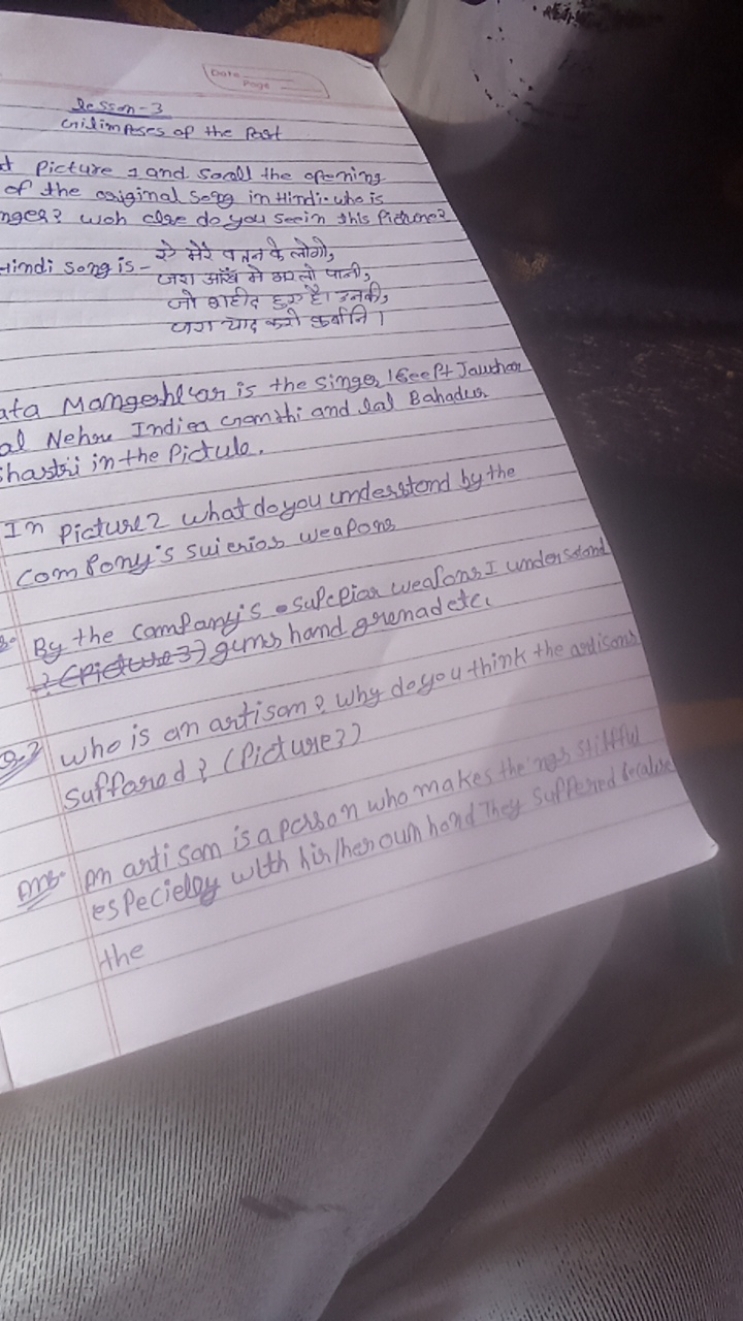 Date
Page
lesson-3
Gilimpses of the Past
Picture 1 and scroll the opening
of the original song in Hindi. who is
nger? woh else do you see in this Picture?
Hindi song is - ऐ मेरे वतन के लोगो,
जरा आँख मे भर लो पानी,
जो शहीद हुए है। उनकी,
जरा याद करो कुर्बानि।
ata Mangeshkar is the singer I See Pt Jawhar
al Nehru Indira Gandhi and lal Bahadur
hastri in the Pictule.
In Picture 2 what do you understand by the
Company's weapons
By the company's weapons I understand
(Picture 3) guns hand grenad etc.
Q.3 who is an artisan? why do you think the artisans
suffered? (Picture 3)
Ans- An artisan is a person who makes things skillful
especieley with his/her own hand They suffered because
the